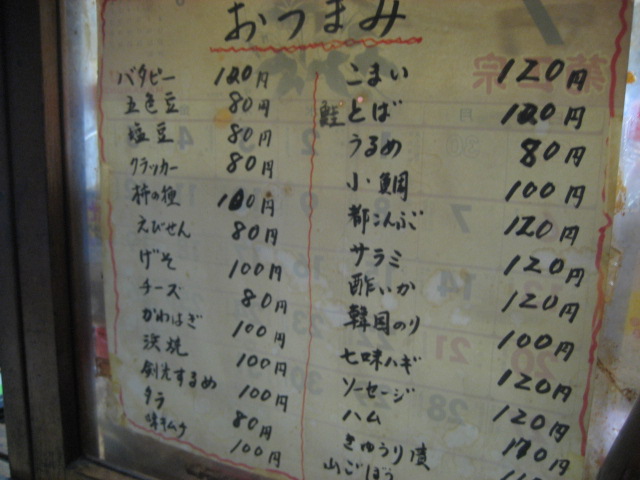 おつまみ
バタピー 100円
五色豆 80円
塩豆 80円
クラッカー 80円
柿の種 100円
えびせん 80円
げそ 100円
チーズ 80円
かわはぎ 100円
浜焼 100円
剣先するめ 100円
タラ 80円
味キムチ 100円
こまい 120円
鮭とば 120円
うるめ 80円
小鯛 100円
都こんぶ 120円
サラミ 120円
酢いか 120円
韓国のり 100円
七味ハギ 120円
ソーセージ 120円
ハム
きゅうり漬
山ごぼう